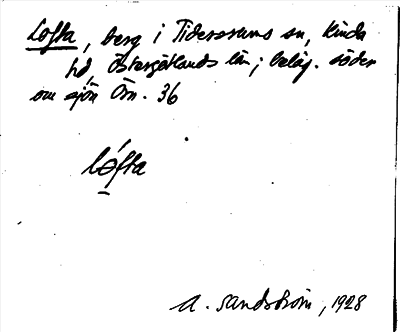 Lofta, berg i Tidersrums sn, Kinda
hd, Östergötlands län; beläg. söder
om sjön Örn. 36
lófta
A. Sandström, 1928